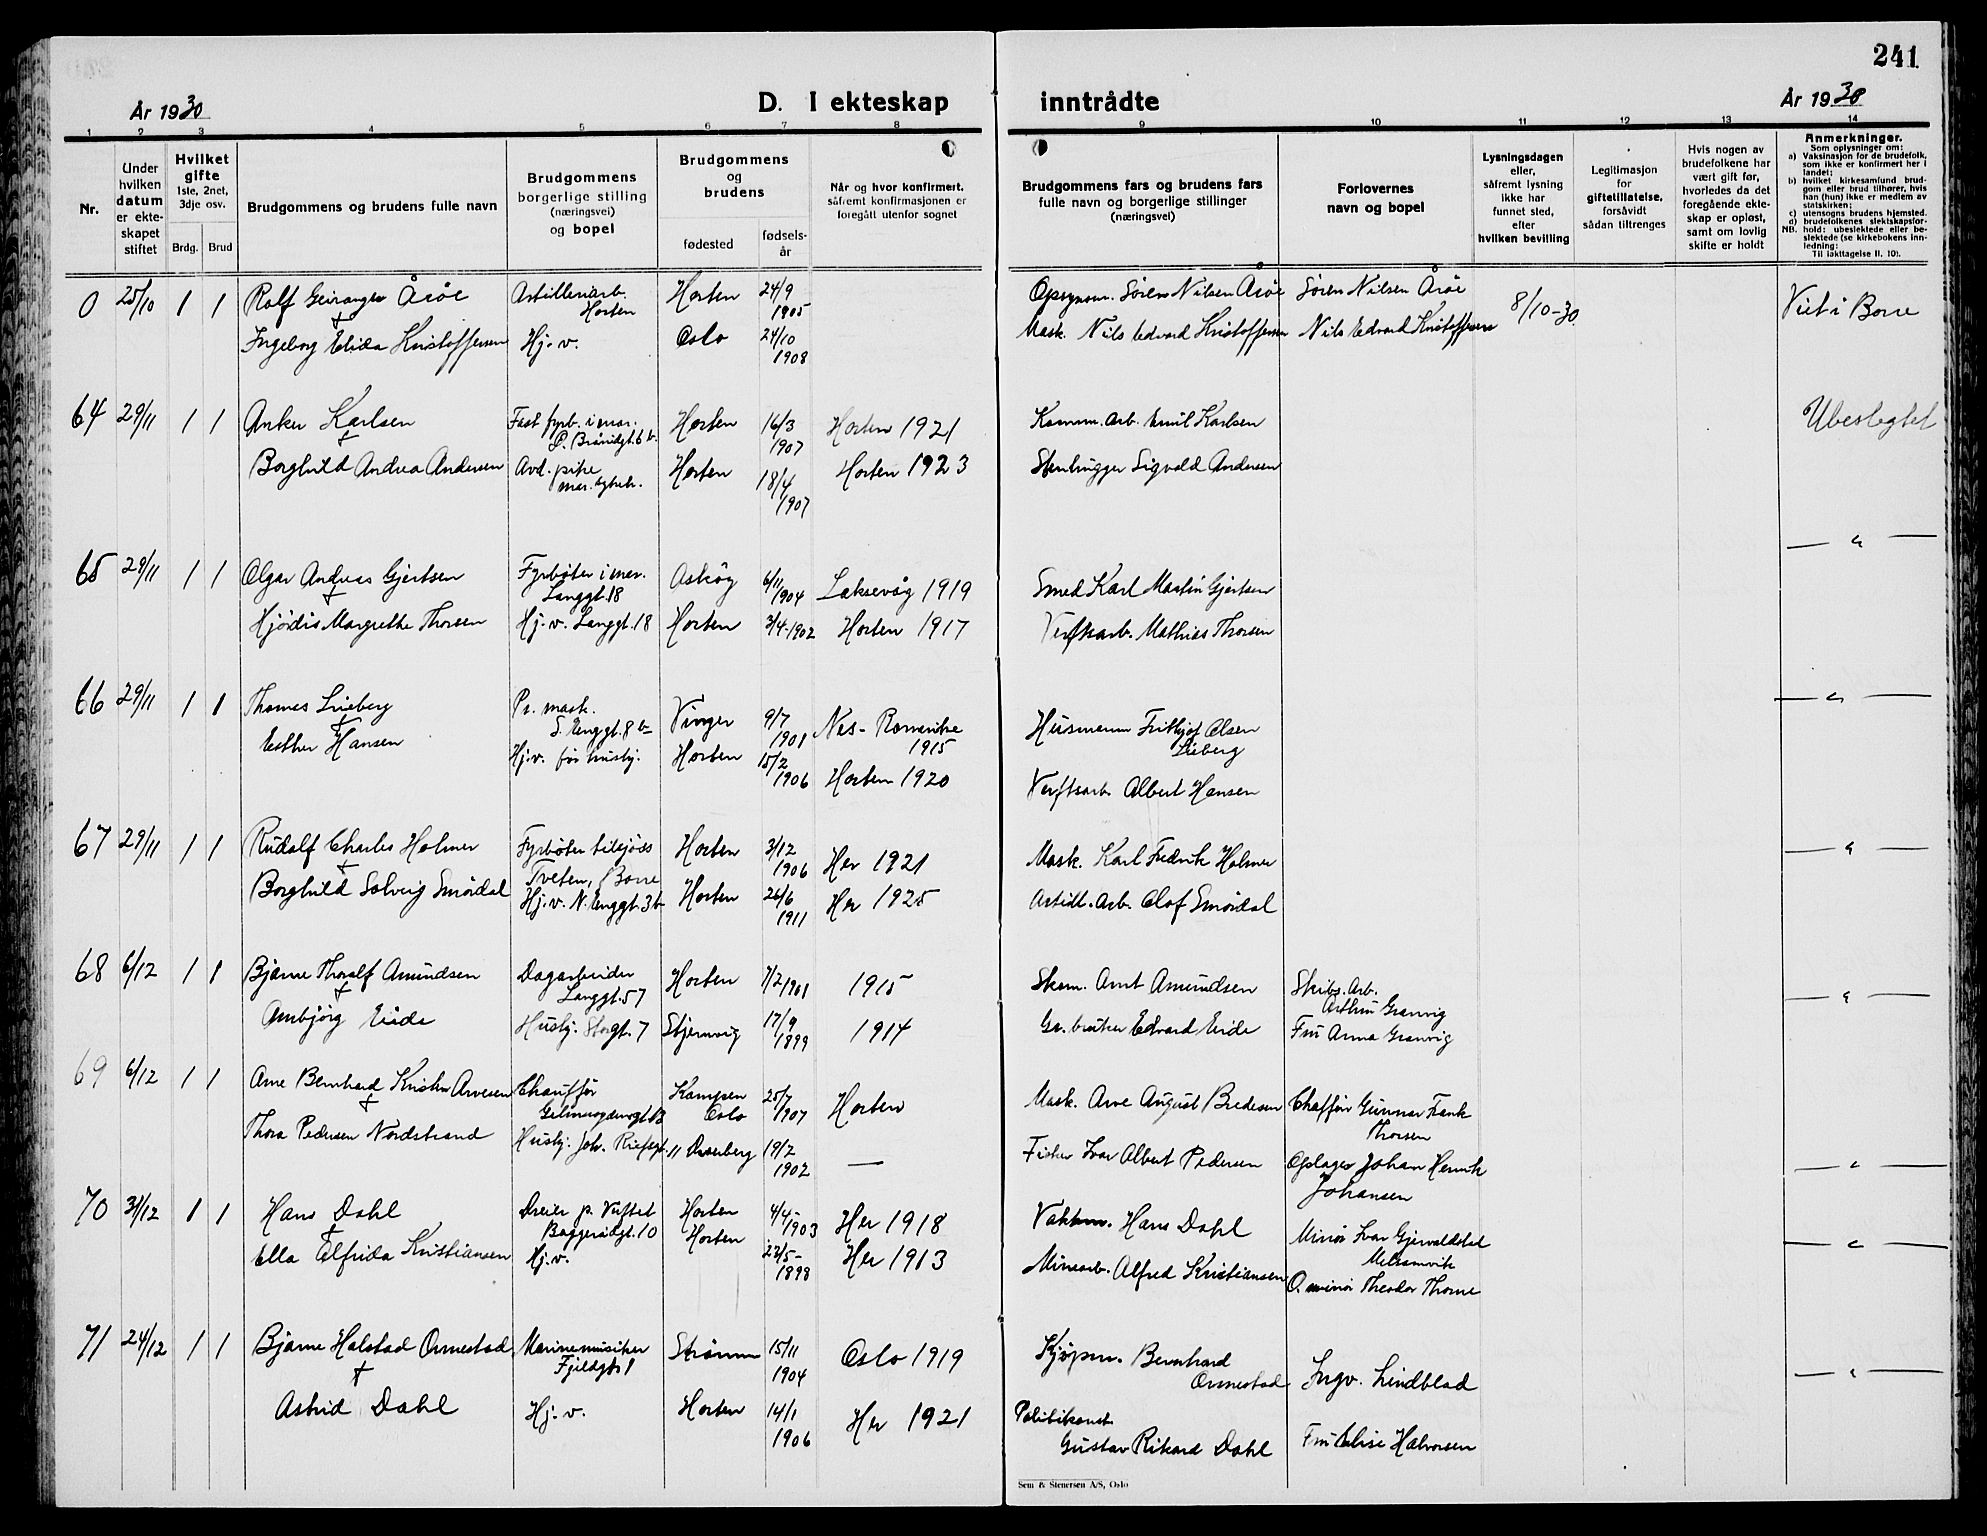 241
År 1930
D. I ekteskap inntrådte
År 1930
1 2 3 4 5 6 7 8 9 10 11 12 13 14
Nr.
Under hvilken datum er ekteskapet stiftet
Hvilket gifte 1ste, 2net, 3dje osv.
Brdg. Brud
Brudgommens og brudens fulle navn
Brudgommens borgerlige stilling (næringsvei) og bopel
Brudgommens og brudens
fødested
fødselsår
Når og hvor konfirmert, såfremt konfirmasjonen er foregått utenfor sognet
Brudgommens fars og brudens fars fulle navn og borgerlige stillinger (næringsvei)
Forlovernes navn og bopel
Lysningsdagen eller, såfremt lysning ikke har funnet sted, efter hvilken bevilling
Legitimasjon for giftetillatelse, forsåvidt sådan tiltrenges
Hvis nogen av brudefolkene har vært gift før, hvorledes da det foregående ekteskap er opløst, samt om lovlig skifte er holdt
Anmerkninger.
Som oplysninger om:
a) Vaksinasjon for de brudefolk, som ikke er konfirmert her i landet;
b) hvilket kirkesamfund brudgom eller brud tilhører, hvis han (hun) ikke er medlem av statskirken;
c) utensogns brudens hjemsted.
d) brudefolkenes slektskapsforhold: ubeslektede eller beslektede (se kirkebokens innledning:
NB. Til iakttagelse II. 10).
0 25/10 1 1 Rolf Geiranger Åsöe Artilleriarb. Horten Horten 24/9 1905 Opsynsm. Sören Nilsen Åsöe Sören Nilsen Åsöe 8/10-30 Viet i Borre
Ingeborg Elida Kristoffersen Hj. v. Oslo 24/10 1908 Mask. Nils Edvard Kristoffersen Nils Edvard Kristoffersen
64 29/11 1 1 Anker Karlsen Fast fyrb. i mar. Horten 16/3 1907 Horten 1921 Komm. arb. Emil Karlsen Ubeslegtet
Borghild Andrea Andersen Avd. pike Horten 18/4 1907 Horten 1923 Stenhugger Sigvald Andersen
65 29/11 1 1 Olgar Andreas Gjertsen Fyrböter i mar. Langgt. 18 Askøy 6/11 1904 Laksevåg 1919 Smed Karl Martin Gjertsen — " —
Hjördis Margrethe Thorsen Hj. v. Langgt. 18 Horten 3/4-1902 Horten 1917 Verftsarb. Mathias Thorsen
66 29/11 1 1 Thomas Lieberg Pr. mask. S. Enggt. 8 b Vinger 9/7 1901 Nes - Romerike 1915 Husmann Frithjof Olsen Lieberg — " —
Esther Hansen Hj. v. før husbj. Horten 15/2 1906 Horten 1920 Verftsarb. Albert Hansen
67 29/11 1 1 Rudolf Charles Holmer Fyrböter tilsjøss Tveten, Borre Horten 3/12 1906 Her 1921 Mask. Karl Fredrik Holmer — " —
Borghild Solveig Smördal Hj. v. N. Enggt. 3 b Horten 26/6 1911 Her 1925 Artill. Arb. Olof Smördal
68 6/12 1 1 Bjarne Thoralf Amundsen Dagarbeider Langgt. 57 Horten 7/2 1901 1915 Skom. Arnt Amundsen Skibs. Arb. Arthur Granvig — " —
Ambjörg Eide Husbj. Storgt. 7 Stjernvig 17/9 1899 1914 Gr. bruker Edvard Eide Fru Anna Granvig
69 6/12 1 1 Arne Bernhard Kristian Arvesen Chauffør Kampen Oslo 25/7 1907 Horten Mask. Arve August Bredesen Chafför Gunnar Frank Thorsen
Thora Pedersen Nordstrand Husbj. Joh. Riefsgt. 11 Dverberg 19/2 1902 — Fisker Ivar Albert Pedersen Oplager Johan Henrik Johansen — " —
70 31/12 1 1 Hans Dahl Dreier p. Verftet Baggerødgt. 10 Horten 4/4- 1903 Her 1918 Vaktm. Hans Dahl Minör Ivar — " —
Ella Elfrida Kristiansen Hj. v. Horten 22/5- 1898 Her 1913 Minearb. Alfred Kristiansen O. minör Theodor Thorne
71 24/12 1 1 Bjarne Halstad Ormestad Marinemusiker Fjeldgt. 1 Strömm 15/11 1904 Oslo 1919 Kjöpm. Bernhard Ormestad Ingv. Lindblad — " —
Astrid Dahl Hj. v. Horten 14/1 1906 Her 1921 Politikonst. Gustav Rikard Dahl Fru Elise Halvorsen
Sem & Stenersen A/S, Oslo